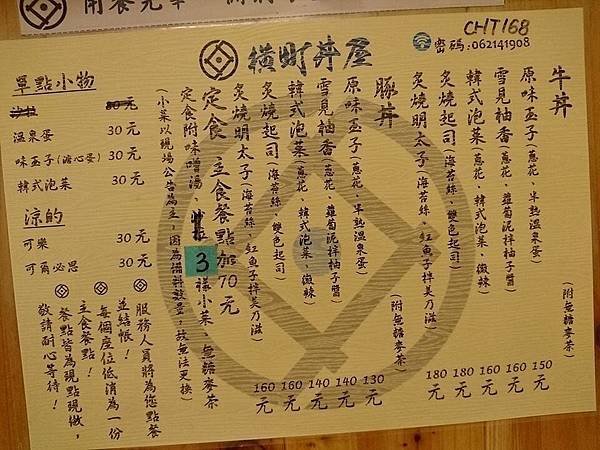 CHT168
密碼:062141908
橫町丼屋
牛丼
原味玉子(蔥花、半熟溫泉蛋) 150元
雪見柚香(蔥花、蘿蔔泥拌柚子醬) 160元
韓式泡菜(蔥花、韓式泡菜、微辣) 160元
炙燒起司(海苔絲、雙色起司) 180元
炙燒明太子(海苔絲、紅魚子拌美乃滋) 180元
(附無糖麥茶)
豚丼
原味玉子(蔥花、半熟溫泉蛋) 130元
雪見柚香(蔥花、蘿蔔泥拌柚子醬) 140元
韓式泡菜(蔥花、韓式泡菜、微辣) 140元
炙燒起司(海苔絲、雙色起司) 160元
炙燒明太子(海苔絲、紅魚子拌美乃滋) 160元
(附無糖麥茶)
定食 主食餐點加70元
定食附味噌湯、3樣小菜、無糖麥茶
(小菜以現場公告為主,因為備料數量,故無法更換)
單點小物
30元
溫泉蛋 30元
味玉子(溏心蛋) 30元
韓式泡菜 30元
涼的
可樂 30元
可爾必思 30元
服務人員將為您點餐
並結帳!
每個座位低消為一份
主食餐點!
餐點皆為現點現做,
敬請耐心等待!